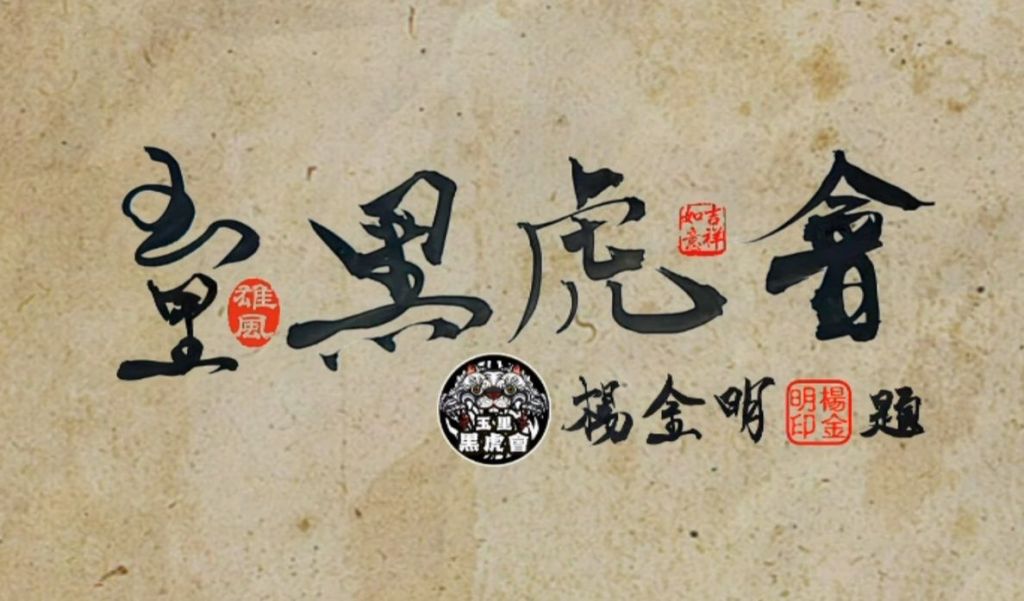 玉里黑虎會
雄風
如意吉祥
玉里
黑虎會
楊金明題
楊金明印